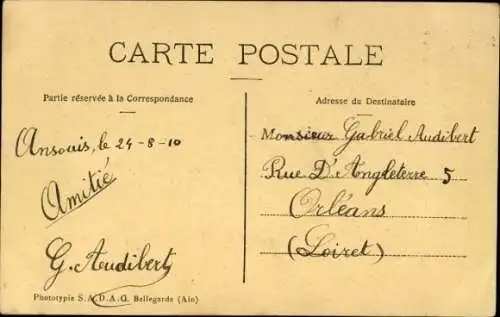 CARTE POSTALE
Partie réservée à la Correspondance
Adresse du Destinataire
Ansouis, le 24-8-10
Amitié
G. Audibert
Monsieur Gabriel Audibert
Rue D'Angleterre 5
Orléans
(Loiret)
Phototypie S.A.D.A.G. Bellegarde (Ain)